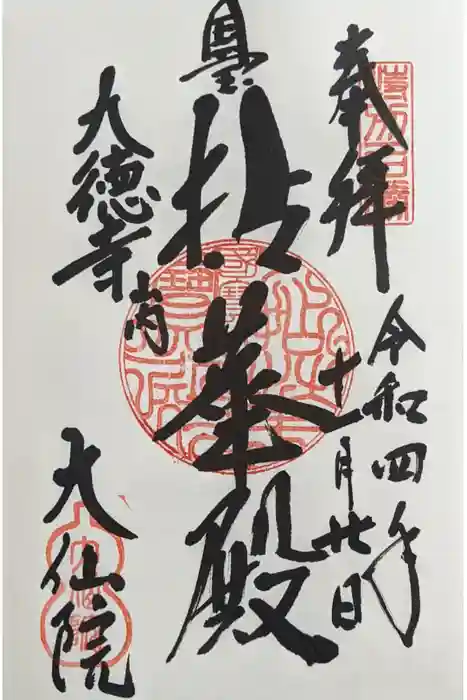 奉拝
令和四年
十月廿日
曇
拈華殿
大徳寺内
大仙院